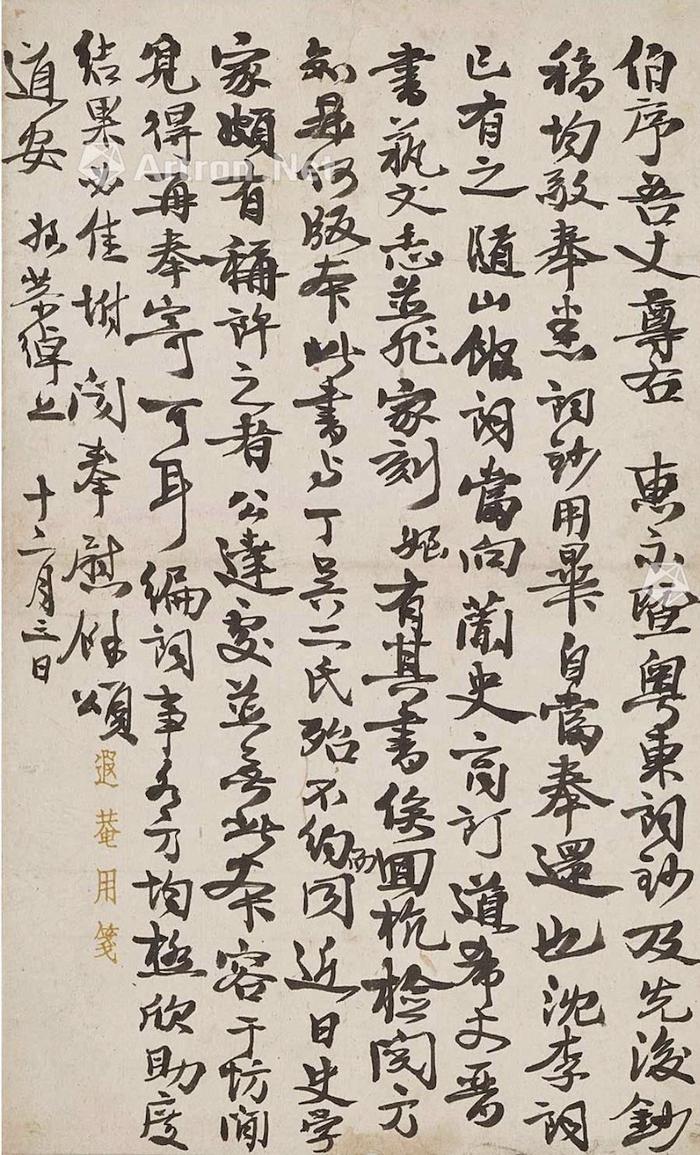 伯序吾丈尊右 惠示暨粵東詞鈔及先後鈔
稿均敬奉悉詞鈔用畢自當奉還也沈李詞
已有之隨山館詞當向蘭史商訂道希丈晉
書藝文志並非家刻姪有其書俟回杭檢閱方
知是何版本此書與丁吳二氏殆不約而同近日史學
家頗有稱許之者公達處並無此本容于坊間
覓得再奉寄可耳編詞事各方均極欣助度
結果必佳坿聞奉慰餘頌
道安 姪恭綽上 十二月三日
遐菴用箋
Artron.Net